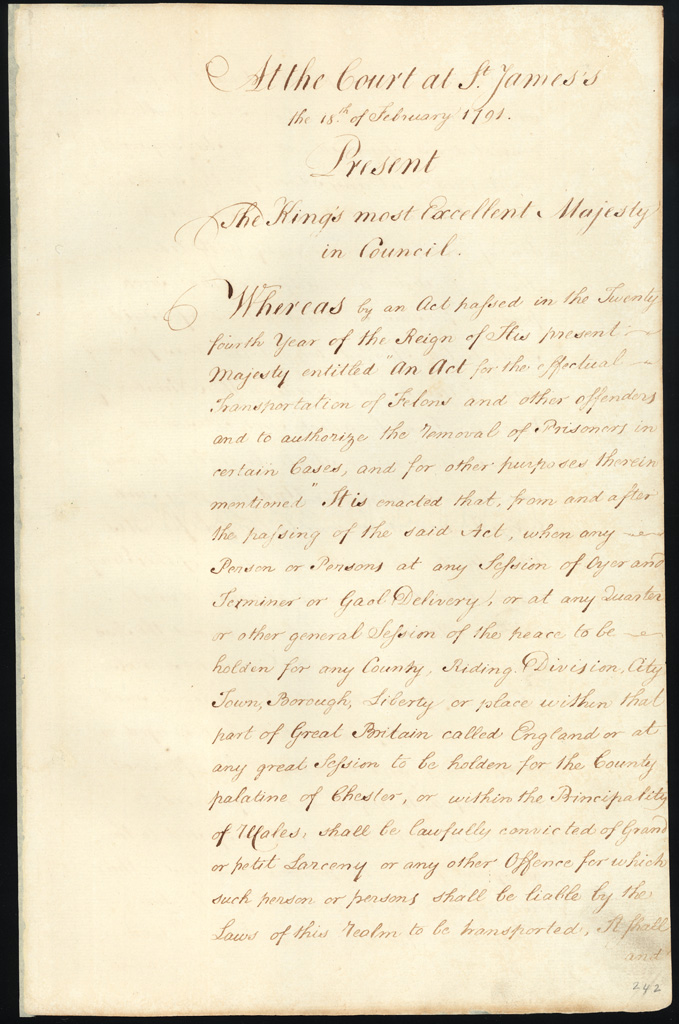 At the Court at St. James's
the 18th of February 1791.
Present
The King's most Excellent Majesty
in Council.
Whereas by an Act passed in the Twenty
fourth Year of the Reign of His present
Majesty entitled "An Act for the effectual
Transportation of Felons and other offenders
and to authorize the removal of Prisoners in
certain Cases, and for other purposes therein
mentioned" It is enacted that, from and after
the passing of the said Act, when any
Person or Persons at any Session of Oyer and
Terminer or Gaol Delivery, or at any Quarter
or other general Session of the peace to be
holden for any County, Riding, Division, City
Town, Borough, Liberty or place within that
part of Great Britain called England or at
any great Session to be holden for the County
palatine of Chester, or within the Principality
of Wales, shall be lawfully convicted of Grand
or petit Larceny or any other Offence for which
such person or persons shall be liable by the
Laws of this realm to be transported, It shall
and
242